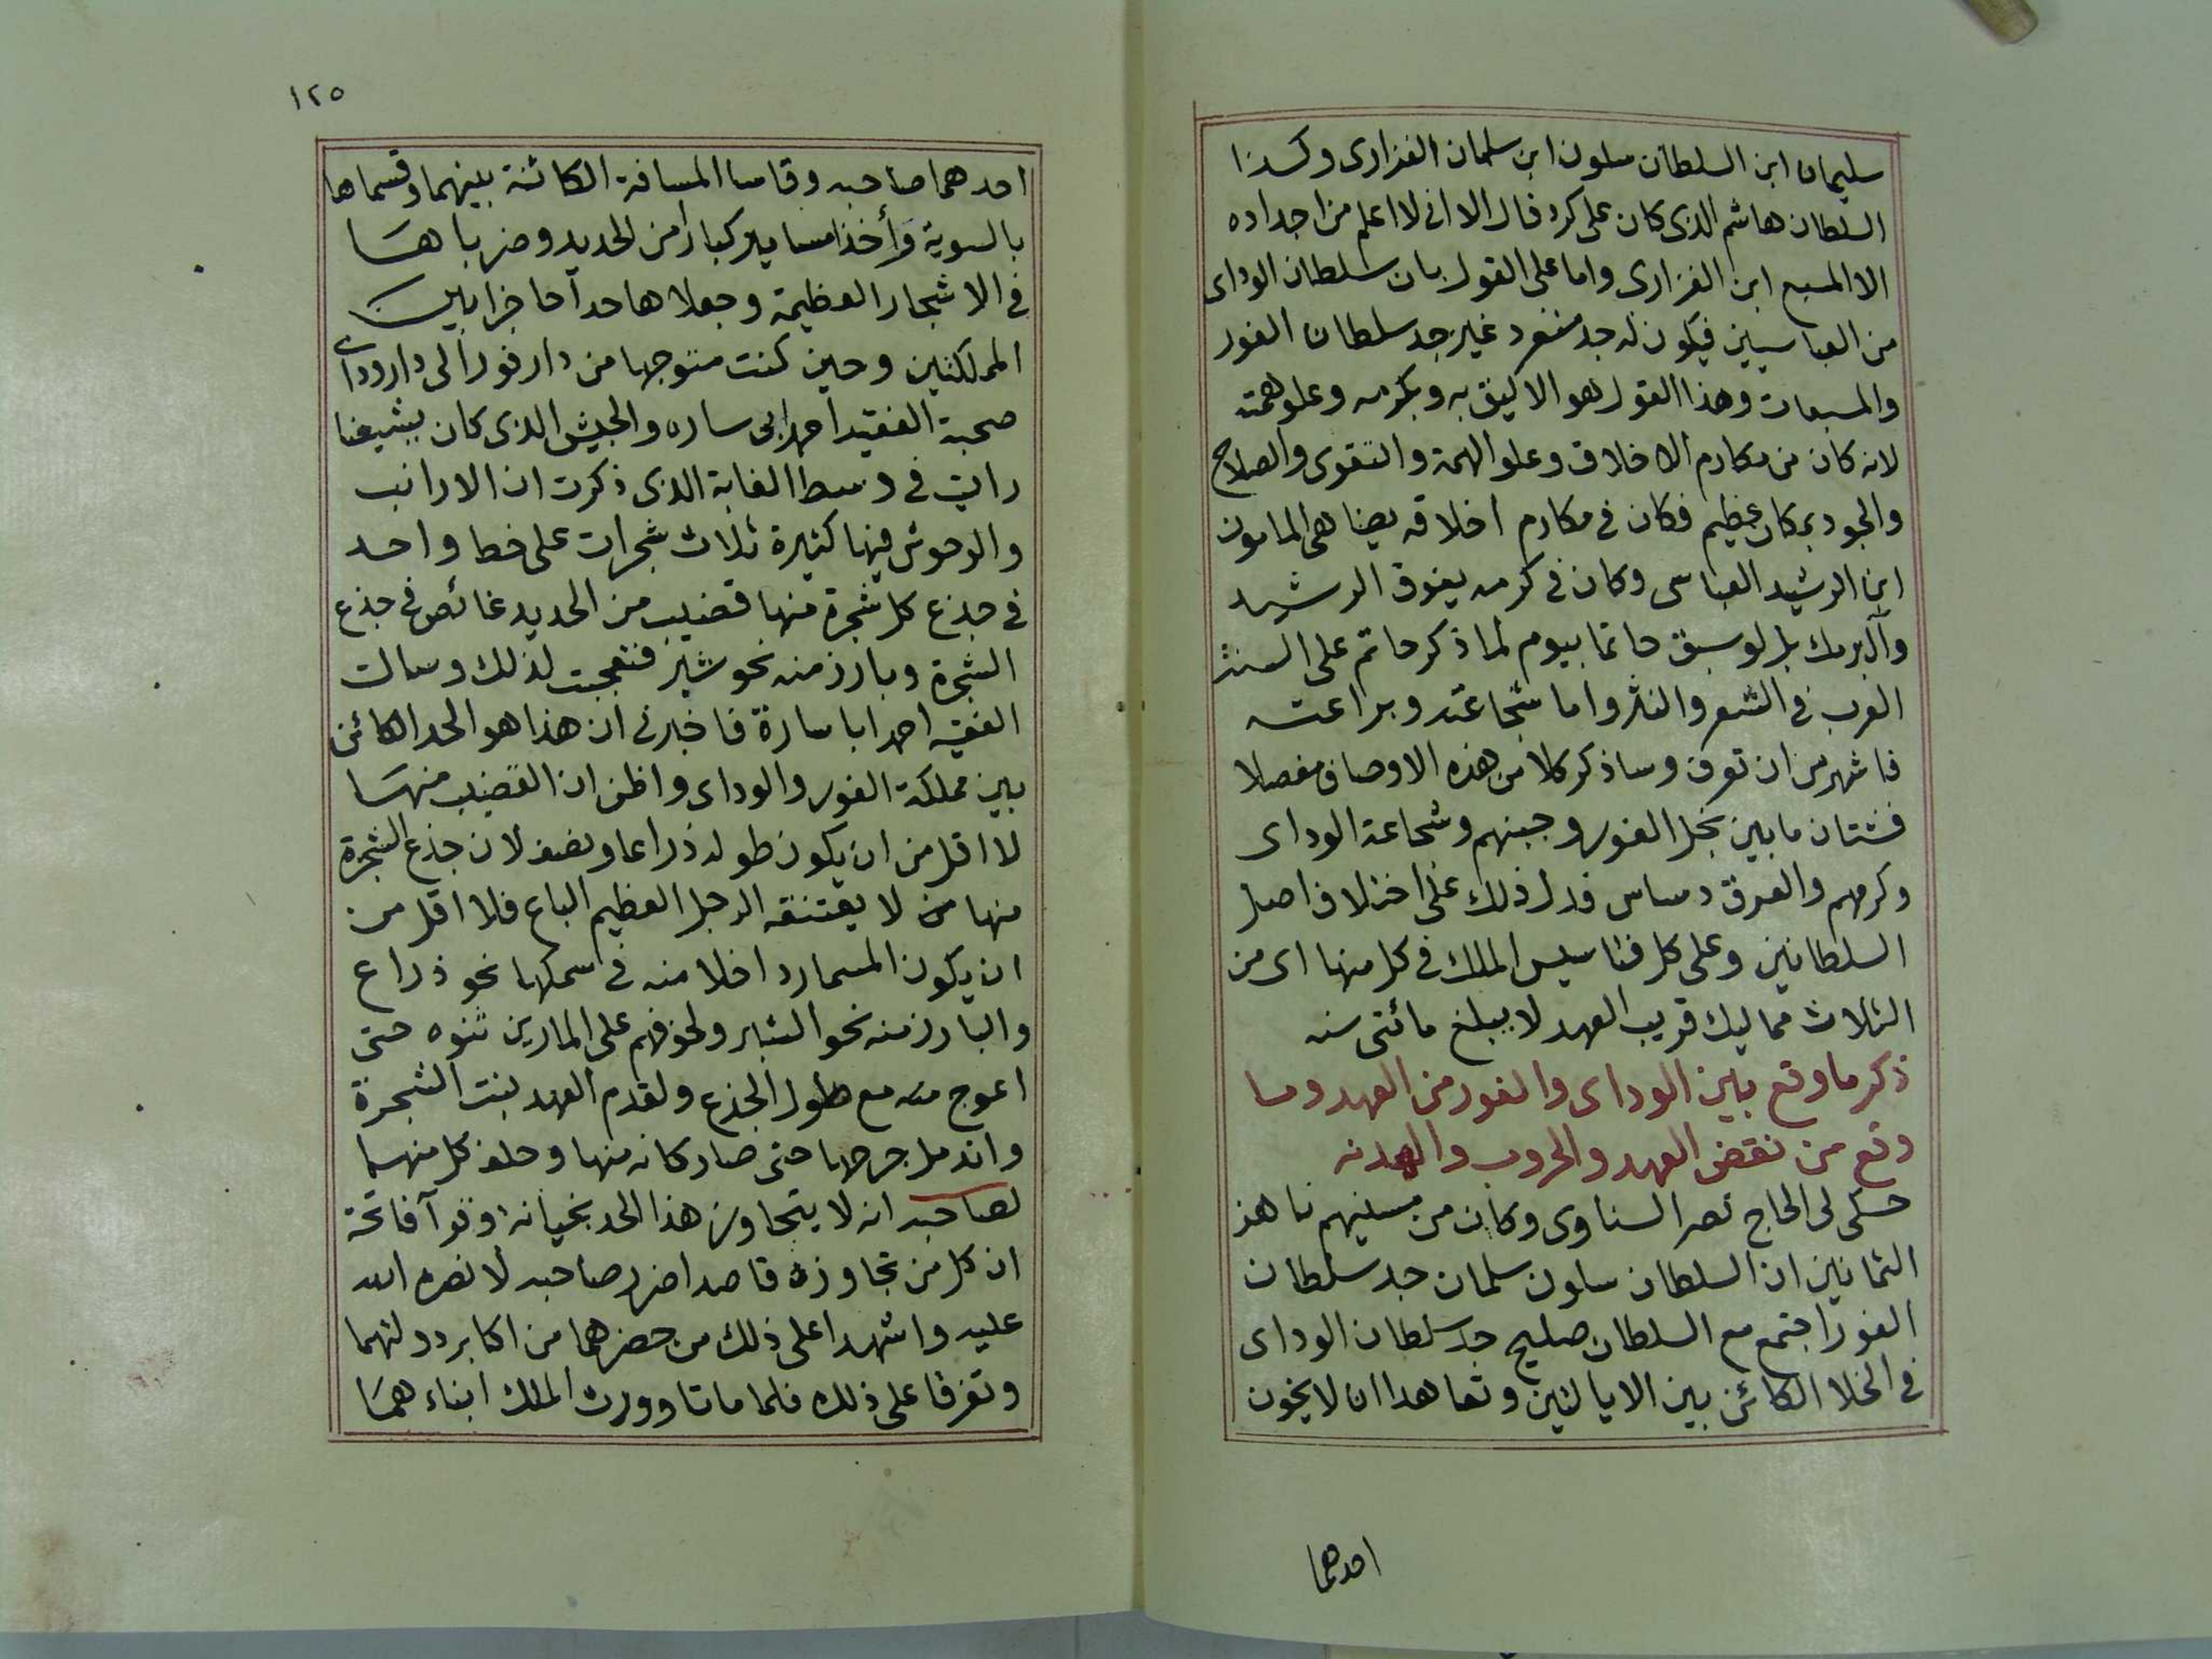 سليمان ابن السلطان سلون ابن سلمان الفزارى وكذا
السلطان هاشم الذى كان على كرد فال الا انى لا اعلم من اجداده
الا المسبع ابن الفزارى واما على القول بان سلطان الوداى
من العباسيين فيكون له جد منفرد غير جد سلطان الفور
والمسبعات وهذا القول هو الاليق به وبكرمه وعلو همته
لانه كان من مكارم الاخلاق وعلو الهمة والتقوى والصلاح
والجود بمكان عظيم فكان فى مكارم اخلاقه يضاهى المامون
ابن الرشيد العباسى وكان فى كرمه يفوق الرشيد
وآل برمك بل لو سبق حاتما بيوم لما ذكر حاتم على السنة
العرب فى الشعر والنثر واما شجاعته وبراعته
فاشهر من ان تعرف وساذكر كلا من هذه الاوصاف مفصلا
فشتان ما بين بخل الفور وجبنهم وشجاعة الوداى
وكرمهم والعرق دساس فدل ذلك على اختلاف اصل
السلطانين وعلى كل فتاسيس الملك فى كل منها اى من
الثلاث ممالك قريب العهد لا يبلغ مائتى سنه
ذكر ما وقع بين الوداى والفور من العهد وما
وقع من نقض العهد والحروب والهدنه
حكى لى الحاج نصر السناوى وكان من مسنيهم ناهز
الثمانين ان السلطان سلون سلمان جد سلطان
الفور اجتمع مع السلطان صليح جد سلطان الوداى
فى الخلا الكائن بين الايالتين وتعاهدا ان لا يخون
احدهما
١٢٥
احدهما صاحبه وقاسا المسافة الكائنة بينهما وقسماها
بالسوية وأخذا مسامير كبارا من الحديد وضرباها
فى الاشجار العظيمة وجعلاها حدا حاجزا بين
المملكتين وحين كنت متوجها من دار فور الى دار وداى
صحبة الفقيه احمد ابى ساره والجيش الذى كان يشيعنا
رايت فى وسط الغابة الذى ذكرت ان الارانب
والوحوش فيها كثيرة ثلاث شجرات على خط واحد
فى جذع كل شجرة منها قضيب من الحديد غائص فى جذع
الشجرة وبارز منه نحو شبر فتعجبت لذلك وسالت
الفقيه احمد ابا سارة فاخبرنى ان هذا هو الحد الكائن
بين مملكة الفور والوداى واظن ان القضيب منها
لا اقل من ان يكون طوله ذراعا ونصف لان جذع الشجرة
منها من لا يعتنقه الرجل العظيم الباع فلا اقل من
ان يكون المسمار داخلا منه فى سمكها نحو ذراع
والبارز منه نحو الشبر ولخوفهم على المارين ثنوه حتى
اعوج منه مع طول الجذع ولقدم العهد بنت الشجرة
واندمل جرحها حتى صار كانه منها وحلف كل منهما
لصاحبه انه لا يتجاوز هذا الحد بخيانة وقرآ فاتحة
ان كل من تجاوزه قاصدا ضرر صاحبه لا نصره الله
عليه واشهدا على ذلك من حضرهما من اكابر دولتهما
وتفرقا على ذلك فلما ماتا وورث الملك ابناءهما